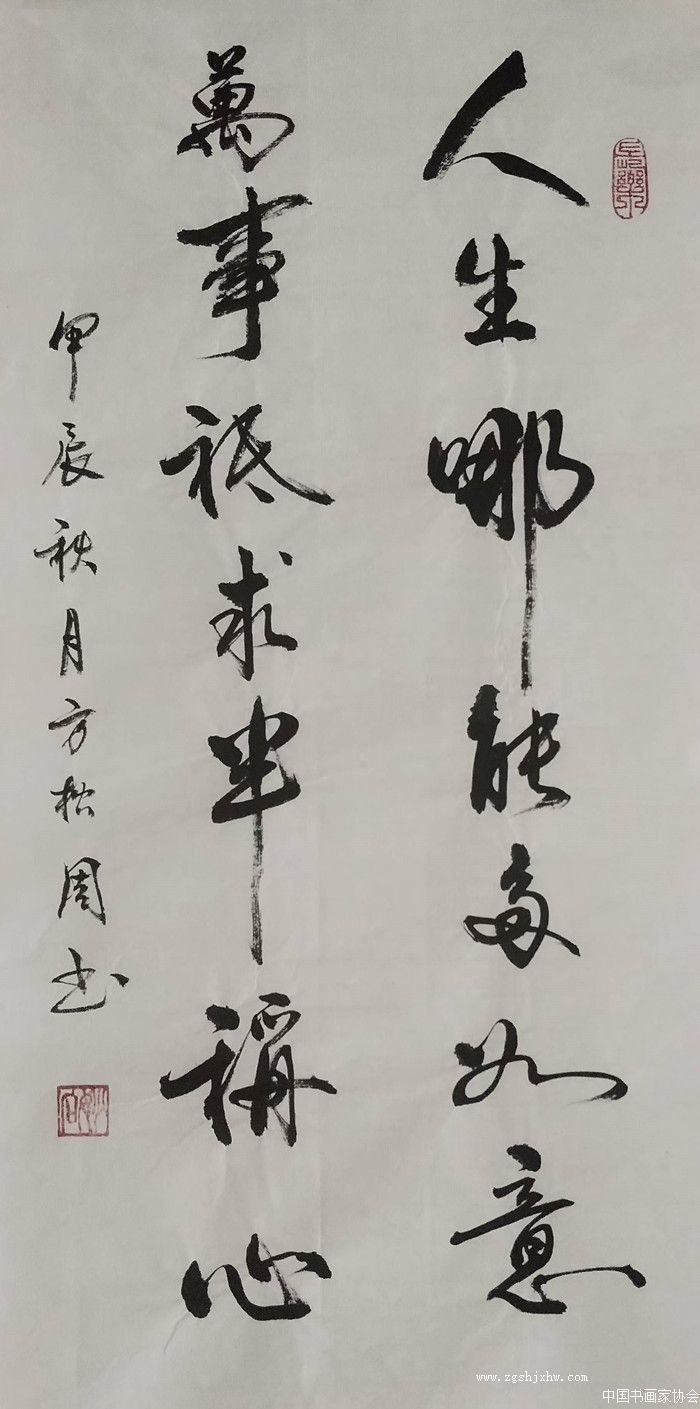 人生哪能多如意
萬事祇求半稱心
甲辰秋月方松周书
長樂
www.zgshjxhw.com
中国书画家协会